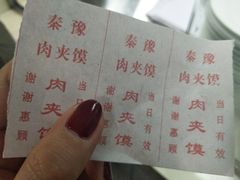 秦豫
肉夹馍
当日有效
肉夹馍
谢谢惠顾
秦豫
肉夹馍
当日有效
肉夹馍
谢谢惠顾
秦豫
肉夹馍
当日有效
肉夹馍
谢谢惠顾